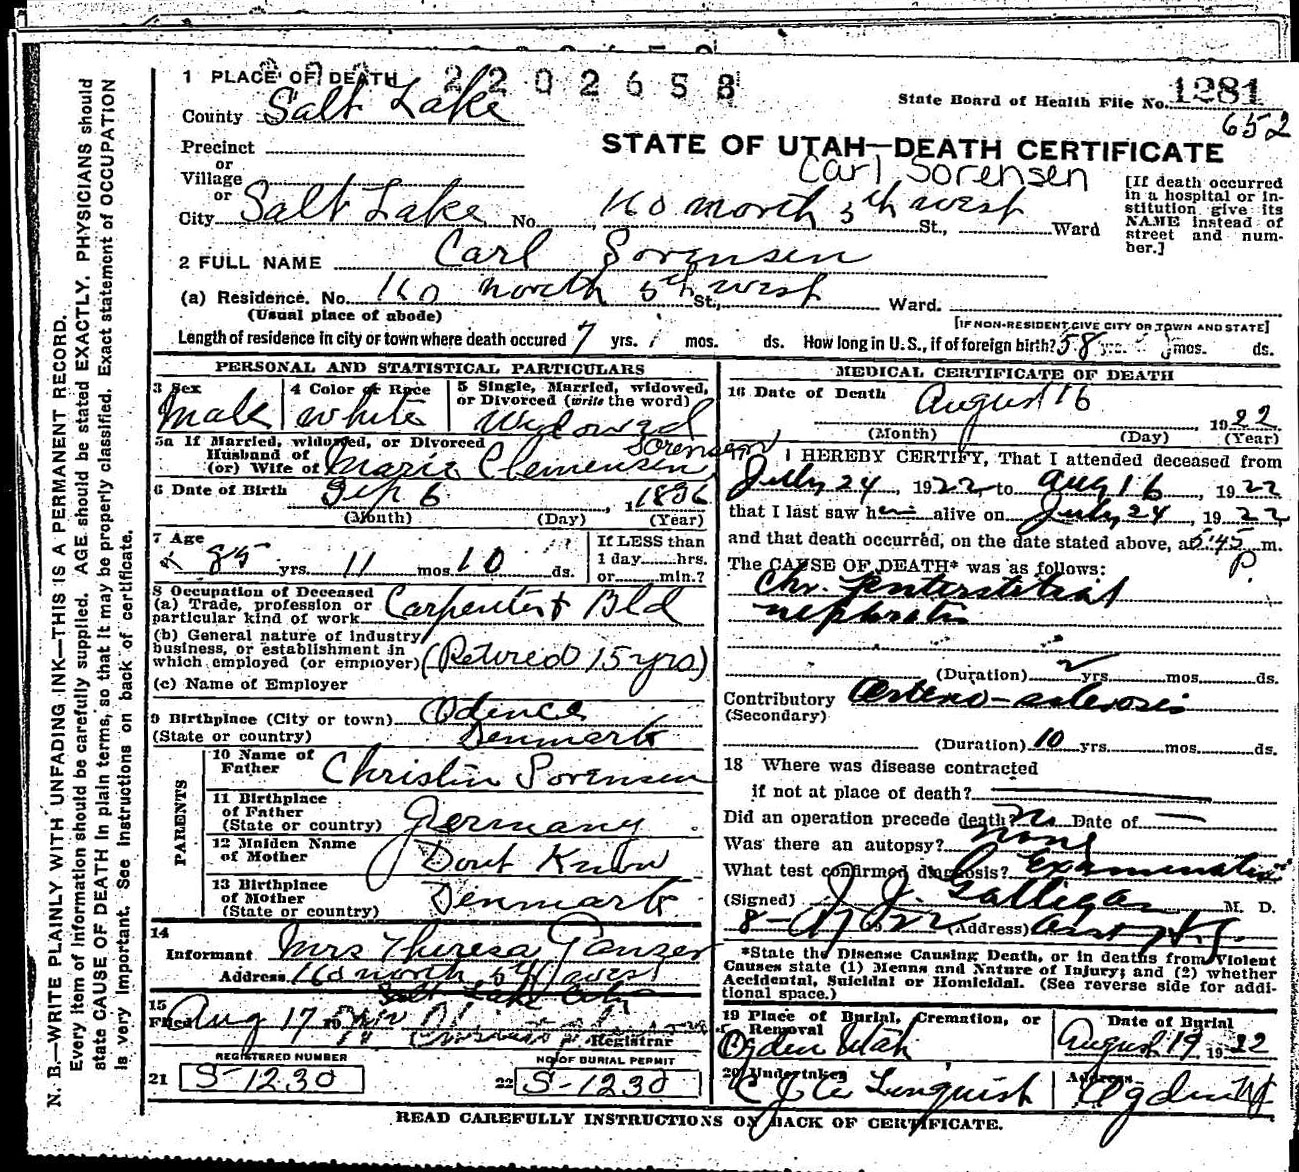 N. B.—WRITE PLAINLY WITH UNFADING INK—THIS IS A PERMANENT RECORD.
Every item of information should be carefully supplied. AGE should be stated EXACTLY. PHYSICIANS should
state CAUSE OF DEATH in plain terms, so that it may be properly classified. Exact statement of OCCUPATION
is very important. See instructions on back of certificate.
1 PLACE OF DEATH 2202658
State Board of Health File No. 1281
652
County Salt Lake
STATE OF UTAH—DEATH CERTIFICATE
Precinct
or
Village
or
Carl Sorensen
City Salt Lake No. 160 North 5th West St., Ward
[If death occurred
in a hospital or in-
stitution give its
NAME instead of
street and num-
ber.]
2 FULL NAME Carl Sorensen
(a) Residence. No. 160 North 5th West St., Ward.
(Usual place of abode)
[IF NON-RESIDENT GIVE CITY OR TOWN AND STATE]
Length of residence in city or town where death occured 7 yrs. mos. ds. How long in U.S., if of foreign birth? 58 yrs. mos. ds.
PERSONAL AND STATISTICAL PARTICULARS
3 Sex 4 Color or Race 5 Single, Married, widowed,
or Divorced (write the word)
Male White Widowed
5a If Married, widowed, or Divorced
Husband of
(or) Wife of Marie Clemensen Sorensen
6 Date of Birth Sep 6, 1836
(Month) (Day) (Year)
7 Age
85 yrs. 11 mos. 10 ds.
If LESS than
1 day hrs.
or min.?
8 Occupation of Deceased
(a) Trade, profession or
particular kind of work Carpenter & Bld
(b) General nature of industry
business, or establishment in
which employed (or employer) (Retired 15 yrs)
(c) Name of Employer
9 Birthplace (City or town) Odence
(State or country) Denmark
PARENTS
10 Name of
Father Christin Sorensen
11 Birthplace
of Father
(State or country) Germany
12 Maiden Name
of Mother Dont Know
13 Birthplace
of Mother
(State or country) Denmark
14
Informant Mrs Theresa Panzer
Address 160 North 5th West
Salt Lake City
15
Filed Aug 17 19
Registrar
REGISTERED NUMBER
21 S-1230
NO OF BURIAL PERMIT
22 S-1230
MEDICAL CERTIFICATE OF DEATH
16 Date of Death August 16 1922
(Month) (Day) (Year)
I HEREBY CERTIFY, That I attended deceased from
July 24, 1922, to Aug 16, 1922
that I last saw him alive on July 24, 1922
and that death occurred, on the date stated above, at 5:45 P m.
The CAUSE OF DEATH* was as follows:
Chr. Interstitial
nephritis
(Duration) 2 yrs. mos. ds.
Contributory Arterio-sclerosis
(Secondary)
(Duration) 10 yrs. mos. ds.
18 Where was disease contracted
if not at place of death?
Did an operation precede death? No Date of
Was there an autopsy? none
What test confirmed diagnosis? Examination
(Signed) J. J. Galligan M. D.
(Address)
*State the Disease Causing Death, or in deaths from Violent
Causes state (1) Menns and Nature of Injury; and (2) whether
Accidental, Suicidal or Homicidal. (See reverse side for addi-
tional space.)
19 Place of Burial, Cremation, or
Removal
Ogden Utah
Date of Burial
August 19 1922
20 Undertaker
Address
Lunquist
Ogden Ut
READ CAREFULLY INSTRUCTIONS ON BACK OF CERTIFICATE.